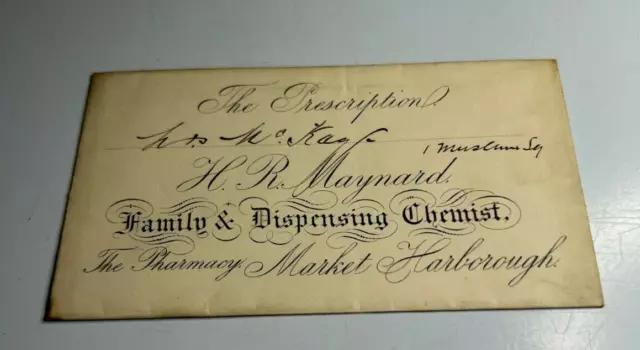 The Prescription
Mc. Kay
H. R. Maynard.
Family & Dispensing Chemist.
The Pharmacy. Market Harborough.